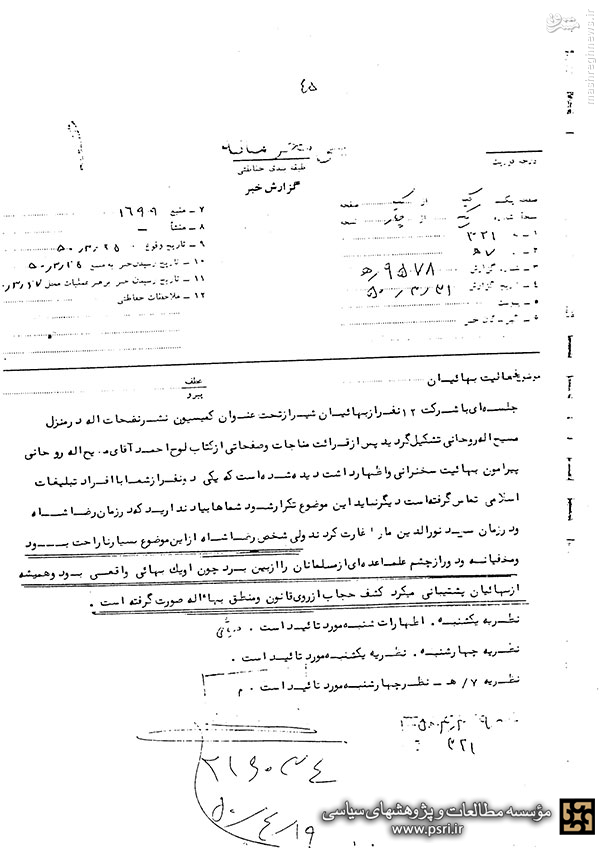 مشرق
mashreghnews.ir
۴۵
طبقه بندی حفاظتی
گزارش خبر
درجه فوریت
صفحه یک از یک صفحه
نسخه شماره یک از چهار نسخه
۱ - به ۳۲۱
۲ - ۹۷
۳ - شماره گزارش ۹۵۷۸/ه
۴ - تاریخ گزارش ۵۰/۳/۳۱
۵ - پیوست
۷ - منبع ۱۶۹۰۹
۸ - منشأ -
۹ - تاریخ وقوع ۵۰/۳/۲۵
۱۰ - تاریخ رسیدن خبر به منبع ۵۰/۳/۲۵
۱۱ - تاریخ رسیدن خبر به رهبر عملیات محل ۵۰/۳/۲۷
۱۲ - ملاحظات حفاظتی
موضوع فعالیت بهائیان
عطف
پیرو
جلسه‌ای با شرکت ۱۲ نفر از بهائیان شیراز تحت عنوان کمیسیون نشر نفحات اله در منزل
مسیح اله روحانی تشکیل گردید پس از قرائت مناجات وصفحاتی از کتاب لوح احمد آقای مسیح اله روحانی
پیرامون بهائیت سخنرانی واظهار داشت دیده شده است که یکی دو نفر از شما با افراد تبلیغات
اسلامی تماس گرفته است دیگر نباید این موضوع تکرار شود شما ها بیاد ندارید که در زمان رضا شاه
ودر زمان سید نورالدین ما را غارت کردند ولی شخص رضا شاه از این موضوع بسیار ناراحت بود
ومخفیانه ودور از چشم علما عده‌ای از مسلمانان را از بین برد چون او یک بهائی واقعی بود وهمیشه
از بهائیان پشتیبانی میکرد کشف حجاب از روی قانون ومنطق بهاءاله صورت گرفته است .
نظریه یکشنبه . اظهارات شنبه مورد تائید است .
نظریه چهارشنبه . نظریه یکشنبه مورد تائید است .
نظریه ۷/ه - نظر چهارشنبه مورد تائید است . م
۳۲۱
۲۱۶۰۳۴
۵۰/۴/۱۹
مؤسسه مطالعات و پژوهشهای سیاسی
www.psri.ir